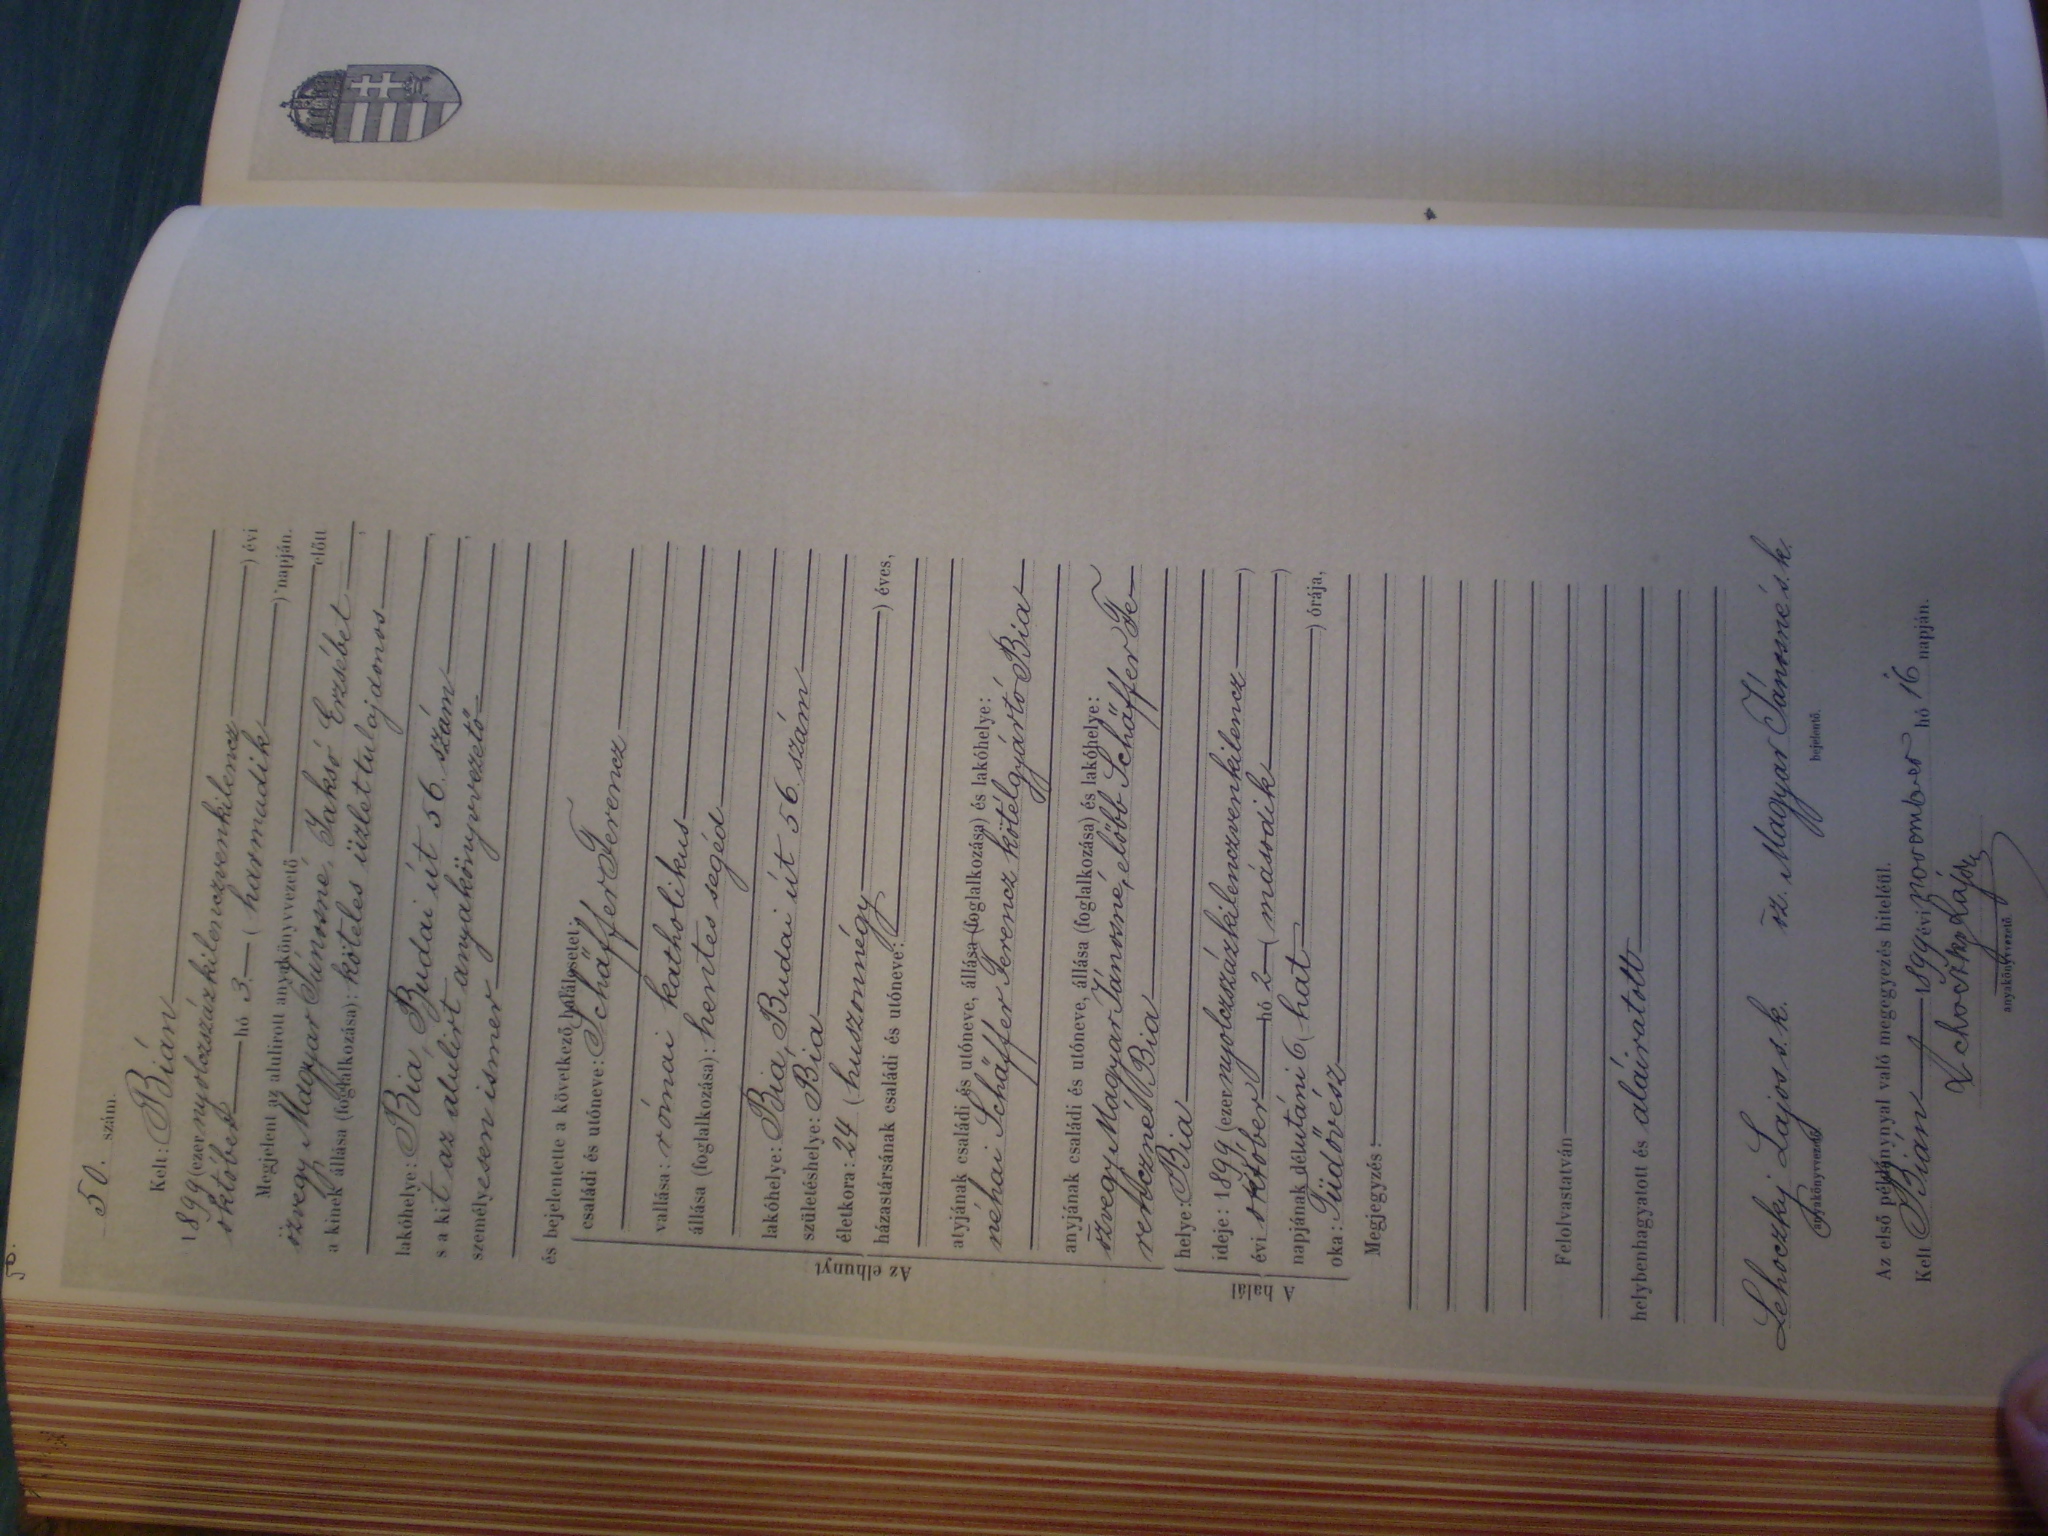 50.
50. szám.
Kelt: Bián
1899 (ezernyolczszázkilenczvenkilencz) évi
október hó 3. (harmadik) napján.
Megjelent az alulirott anyakönyvvezető előtt
özvegy Magyar Jánosné, Jaksó Erzsébet,
a kinek állása (foglalkozása): köteles üzlettulajdonos
lakóhelye: Bia, Budai út 56. szám,
s a kit az alulirt anyakönyvvezető,
személyesen ismer
és bejelentette a következő halálesetet:
Az elhunyt
családi és utóneve: Schäffer Ferencz
vallása: római katholikus
állása (foglalkozása): hentes segéd
lakóhelye: Bia, Budai út 56. szám
születéshelye: Bia
életkora: 24 (huszonnégy) éves,
házastársának családi és utóneve:
atyjának családi és utóneve, állása (foglalkozása) és lakóhelye:
néhai Schäffer Ferencz kötélgyártó Bia
anyjának családi és utóneve, állása (foglalkozása) és lakóhelye:
özvegy Magyar Jánosné, előbb Schäffer Fe-
renczné Bia
A halál
helye: Bia
ideje: 1899 (ezernyolczszázkilenczvenkilencz)
évi október hó 2 (második)
napjának délutáni 6 (hat) órája,
oka: Tüdővész
Megjegyzés:
Felolvastatván
helybenhagyatott és aláiratott
Lehoczky Lajos s. k. öz. Magyar Jánosné s. k.
anyakönyvvezető. bejelentő.
Az első példánynyal való megegyezés hiteléül.
Kelt Bián 1899 évi november hó 16 napján.
Lehoczky Lajos
anyakönyvvezető.